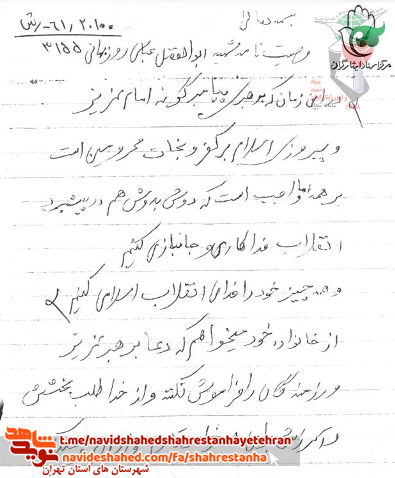 بسمه تعالی
وصیت نامه شهید ابوالفضل عباسی روزبهانی ۳۱۵۵
در این زمان که رهبری پیامبرگونه امام عزیز
و پیروزی اسلام بر کفر و نجات محرومین است
بر همه ما واجب است که دوش بدوش هم در پیشبرد
انقلاب فداکاری و جانبازی کنیم
و همه چیز خود را فدای انقلاب اسلامی کنیم
از خانواده خود میخواهم که دعا بر رهبر عزیز
و رزمندگان را فراموش نکنند و از خدا طلب بخشش
t.me/navidshahedshahrestanhayetehran
navideshahed.com/fa/shahrestanha
شهرستان های استان تهران